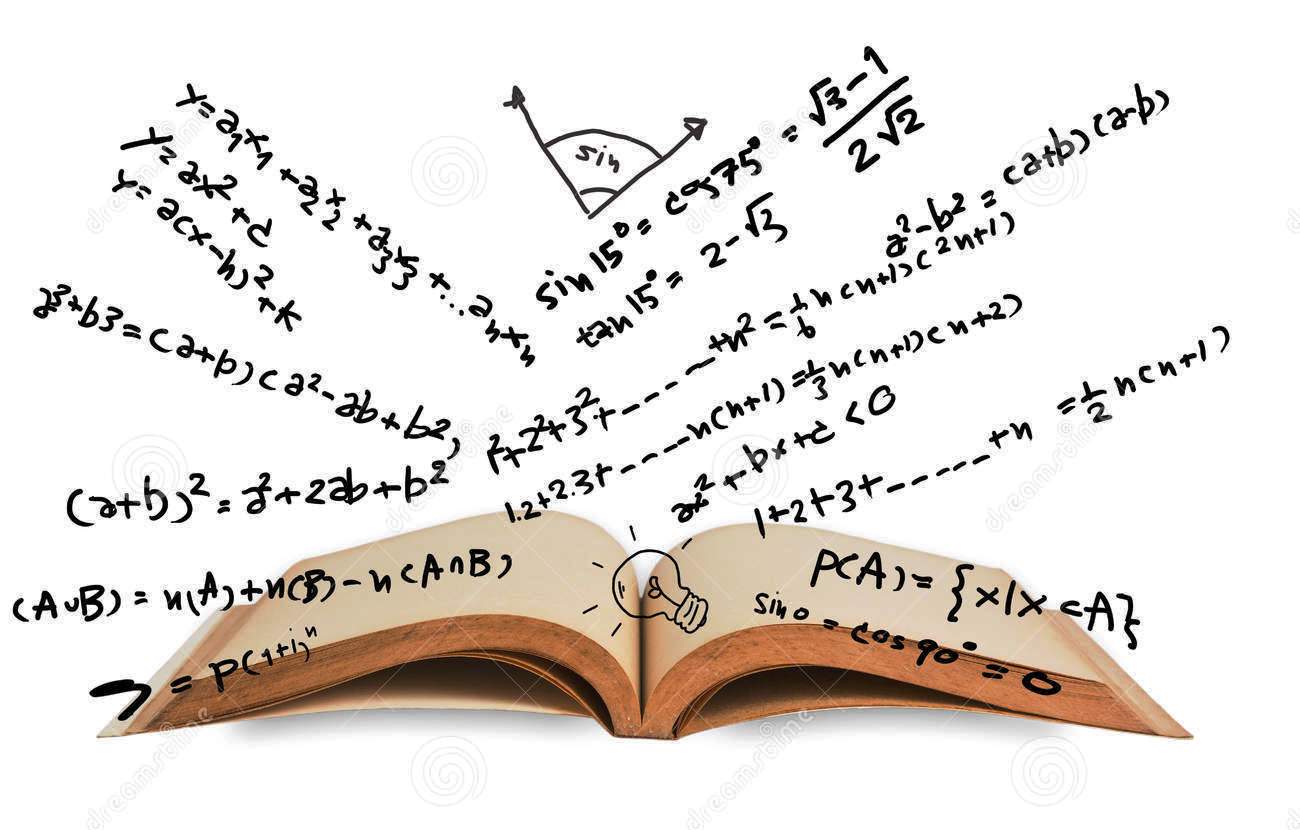 x=a₁x₁+a₂x₂+a₃x₃+...aₙxₙ
y=ax²+c
y=a(x-h)²+k
sin
sin15°=cos75°=√3-1/2√2
tan15°=2-√3
a²-b²=(a+b)(a-b)
a³+b3=(a+b)(a²-ab+b²,
1²+2²+3²+------+n²=1/6n(n+1)(2n+1)
1.2+2.3+----n(n+1)=1/3n(n+1)(n+2)
ax²+bx+c<0
(a+b)²=a²+2ab+b²
1+2+3+-----+n=1/2n(n+1)
(A∪B)=n(A)+n(B)-n(A∩B)
P(A)={x|x⊂A}
sin0=cos90°=0
dreamstime